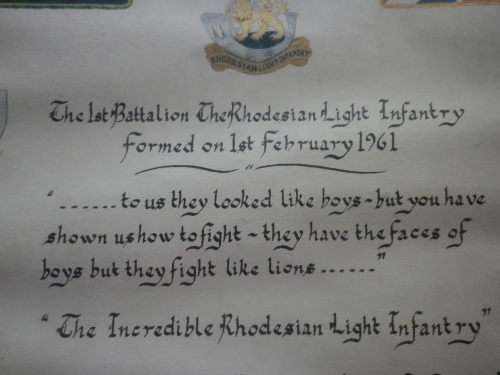 RHODESIAN LIGHT INFANTRY
The 1st Battalion The Rhodesian Light Infantry
formed on 1st February 1961
" ...... to us they looked like boys - but you have
shown us how to fight - they have the faces of
boys but they fight like lions ...... "
" The Incredible Rhodesian Light Infantry "